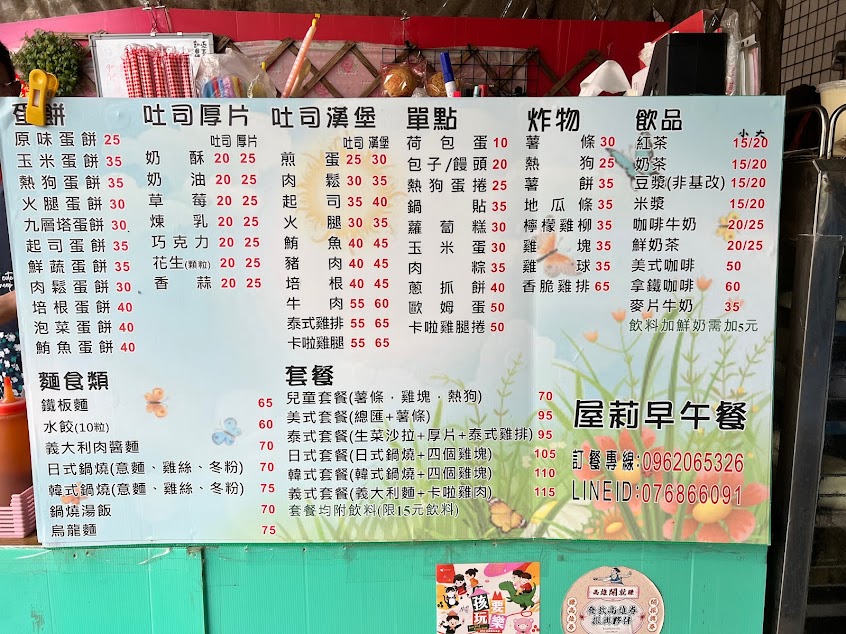 蛋餅
原味蛋餅 25
玉米蛋餅 35
熱狗蛋餅 35
火腿蛋餅 30
九層塔蛋餅 30
起司蛋餅 35
鮮蔬蛋餅 35
肉鬆蛋餅 30
培根蛋餅 40
泡菜蛋餅 40
鮪魚蛋餅 40
吐司厚片
吐司 厚片
奶酥 20 25
奶油 20 25
草莓 20 25
煉乳 20 25
巧克力 20 25
花生(顆粒) 20 25
香蒜 20 25
吐司漢堡
吐司 漢堡
煎蛋 25 30
肉鬆 30 35
起司 35 40
火腿 30 35
鮪魚 40 45
豬肉 40 45
培根 40 45
牛肉 55 60
泰式雞排 55 65
卡啦雞腿 55 65
單點
荷包蛋 10
包子/饅頭 20
熱狗蛋捲 25
鍋貼 35
蘿蔔糕 30
玉米蛋 30
肉粽 35
蔥抓餅 40
歐姆蛋 50
卡啦雞腿捲 50
炸物
薯條 30
熱狗 25
薯餅 35
地瓜條 35
檸檬雞柳 35
雞塊 35
雞球 35
香脆雞排 65
飲品
小 大
紅茶 15/20
奶茶 15/20
豆漿(非基改) 15/20
米漿 15/20
咖啡牛奶 20/25
鮮奶茶 20/25
美式咖啡 50
拿鐵咖啡 60
麥片牛奶 35
飲料加鮮奶需加5元
麵食類
鐵板麵 65
水餃(10粒) 60
義大利肉醬麵 70
日式鍋燒(意麵、雞絲、冬粉) 70
韓式鍋燒(意麵、雞絲、冬粉) 75
鍋燒湯飯 70
烏龍麵 75
套餐
兒童套餐(薯條．雞塊．熱狗) 70
美式套餐(總匯+薯條) 95
泰式套餐(生菜沙拉+厚片+泰式雞排) 95
日式套餐(日式鍋燒+四個雞塊) 105
韓式套餐(韓式鍋燒+四個雞塊) 110
義式套餐(義大利麵+卡啦雞肉) 115
套餐均附飲料(限15元飲料)
屋莉早午餐
訂餐專線:0962065326
LINEID:076866091
孩要
玩樂
高雄 開就賺
餐飲高雄券
振興夥伴